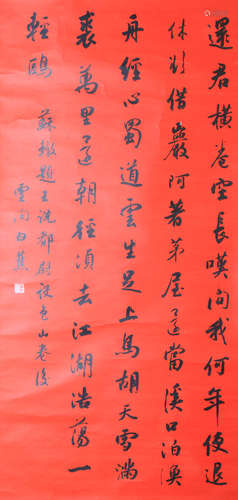 還君橫卷空長嘆問我何年便退
休欲借巖阿著茅屋還當溪口泊漁
舟經心蜀道雲生足上馬胡天雪滿
裘萬里還朝徑須去江湖浩蕩一
輕鷗
蘇轍題王詵都尉設色山卷後
雲間白蕉